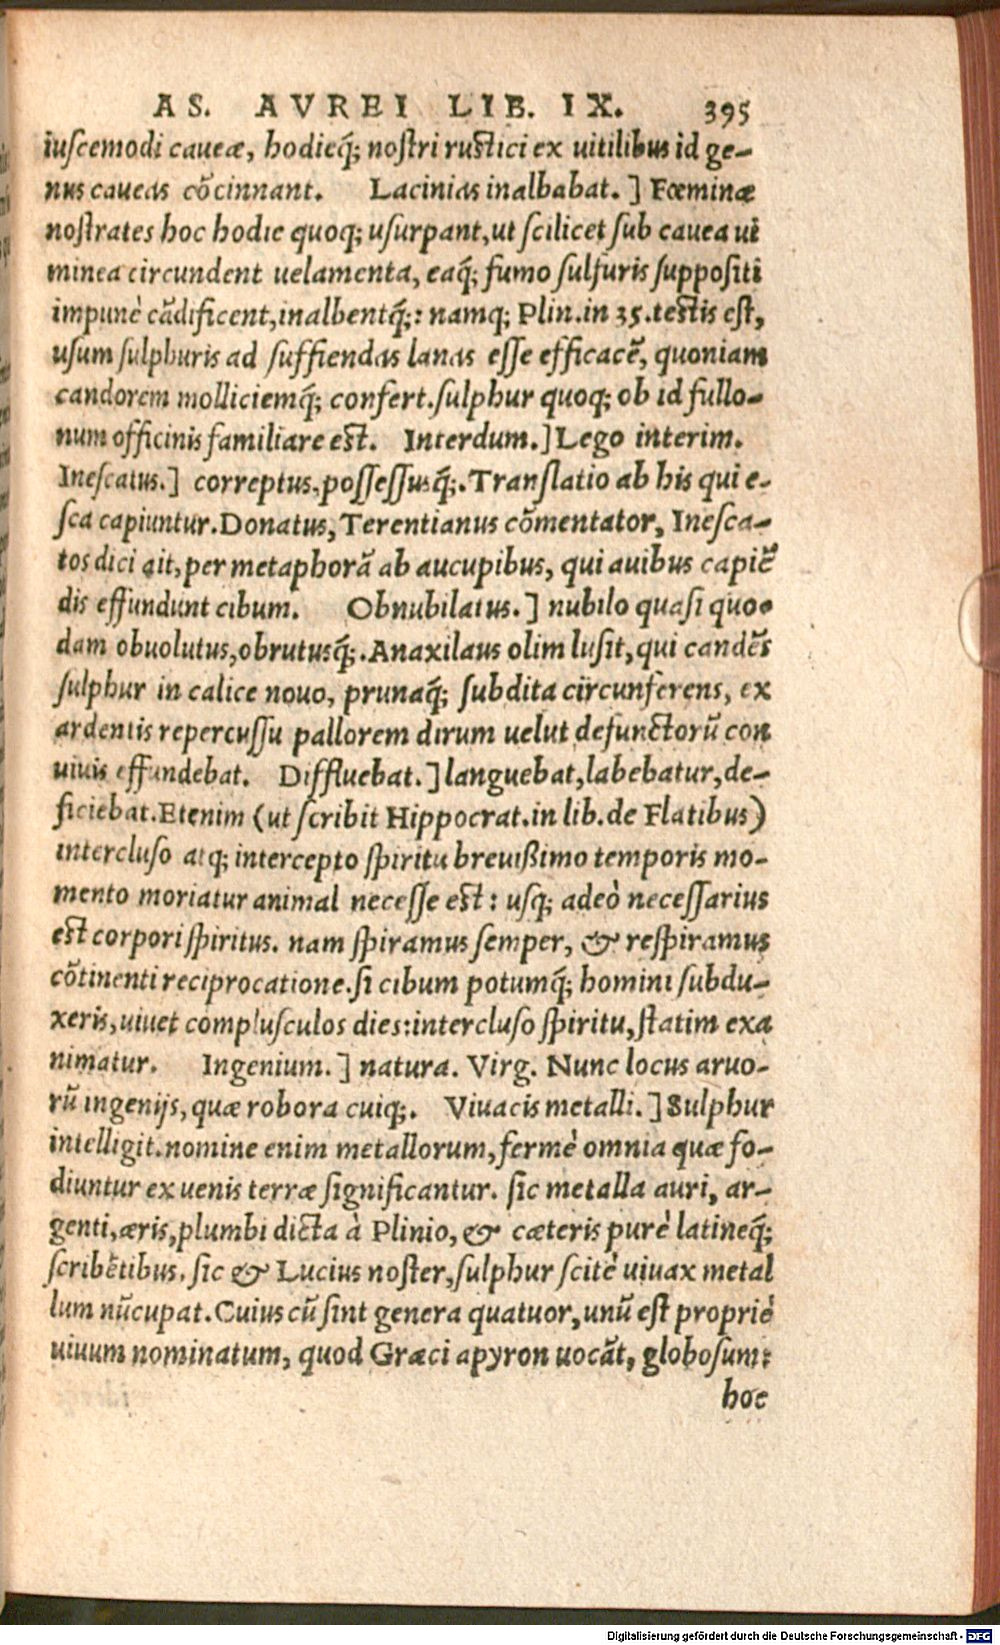 AS. AVREI LIB. IX. 395
iuscemodi caueæ, hodieq́; nostri rustici ex uitilibus id ge-
nus caueas cõcinnant. Lacinias inalbabat.] Fœminæ
nostrates hoc hodie quoq; usurpant, ut scilicet sub cauea ui
minea circundent uelamenta, eaq́; fumo sulfuris suppositi
impunè cãdificent, inalbentq́;: namq; Plin. in 35. testis est,
usum sulphuris ad suffiendas lanas esse efficacẽ, quoniam
candorem molliciemq́; confert. sulphur quoq; ob id fullo-
num officinis familiare est. Interdum.] Lego interim.
Inescatus.] correptus, possessusq́;. Translatio ab his qui e-
sca capiuntur. Donatus, Terentianus cõmentator, Inesca-
tos dici ait, per metaphorã ab aucupibus, qui auibus capiẽ
dis effundunt cibum. Obnubilatus.] nubilo quasi quo-
dam obuolutus, obrutusq́;. Anaxilaus olim lusit, qui candẽs
sulphur in calice nouo, prunaq́; subdita circunferens, ex
ardentis repercussu pallorem dirum uelut defunctorũ con
uiuis effundebat. Diffluebat.] languebat, labebatur, de-
ficiebat. Etenim (ut scribit Hippocrat. in lib. de Flatibus)
intercluso atq; intercepto spiritu breuißimo temporis mo-
mento moriatur animal necesse est: usq; adeò necessarius
est corpori spiritus. nam spiramus semper, & respiramus
cõtinenti reciprocatione. si cibum potumq́; homini subdu-
xeris, uiuet complusculos dies: intercluso spiritu, statim exa
nimatur. Ingenium.] natura. Virg. Nunc locus aruo-
rũ ingenijs, quæ robora cuiq;. Viuacis metalli.] Sulphur
intelligit. nomine enim metallorum, fermè omnia quæ fo-
diuntur ex uenis terræ significantur. sic metalla auri, ar-
genti, æris, plumbi dicta à Plinio, & cæteris purè latineq́;
scribẽtibus. sic & Lucius noster, sulphur scitè uiuax metal
lum nũcupat. Cuius cũ sint genera quatuor, unũ est propriè
uiuum nominatum, quod Græci apyron uocãt, globosum:
hoc
Digitalisierung gefördert durch die Deutsche Forschungsgemeinschaft - DFG